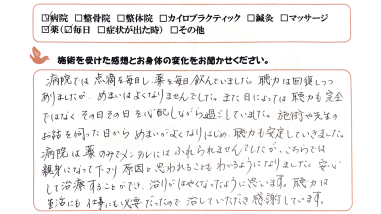 ☑病院 □整骨院 □整体院 □カイロプラクティック □鍼灸 □マッサージ
☑薬(☑毎日 □症状が出た時) □その他
施術を受けた感想とお身体の変化をお聞かせください。
病院では点滴を毎日し、薬を毎日飲んでいました。聴力は回復しつつ
ありましたが、めまいはよくなりませんでした。また日によっては聴力も完全
ではなく その日その日を心配しながら過していました。施術や先生の
お話を伺った日から めまいがよくなりはじめ、聴力も安定していきました。
病院は薬のみでメンタルにはふれられませんでしたが、こちらでは
親身になって下さり 原因と思われることもわかるようになりました。安心
して治療することができ、治りがはやくなったように思います。聴力は
生活にも仕事にも必要だったので 治していただき感謝しています。